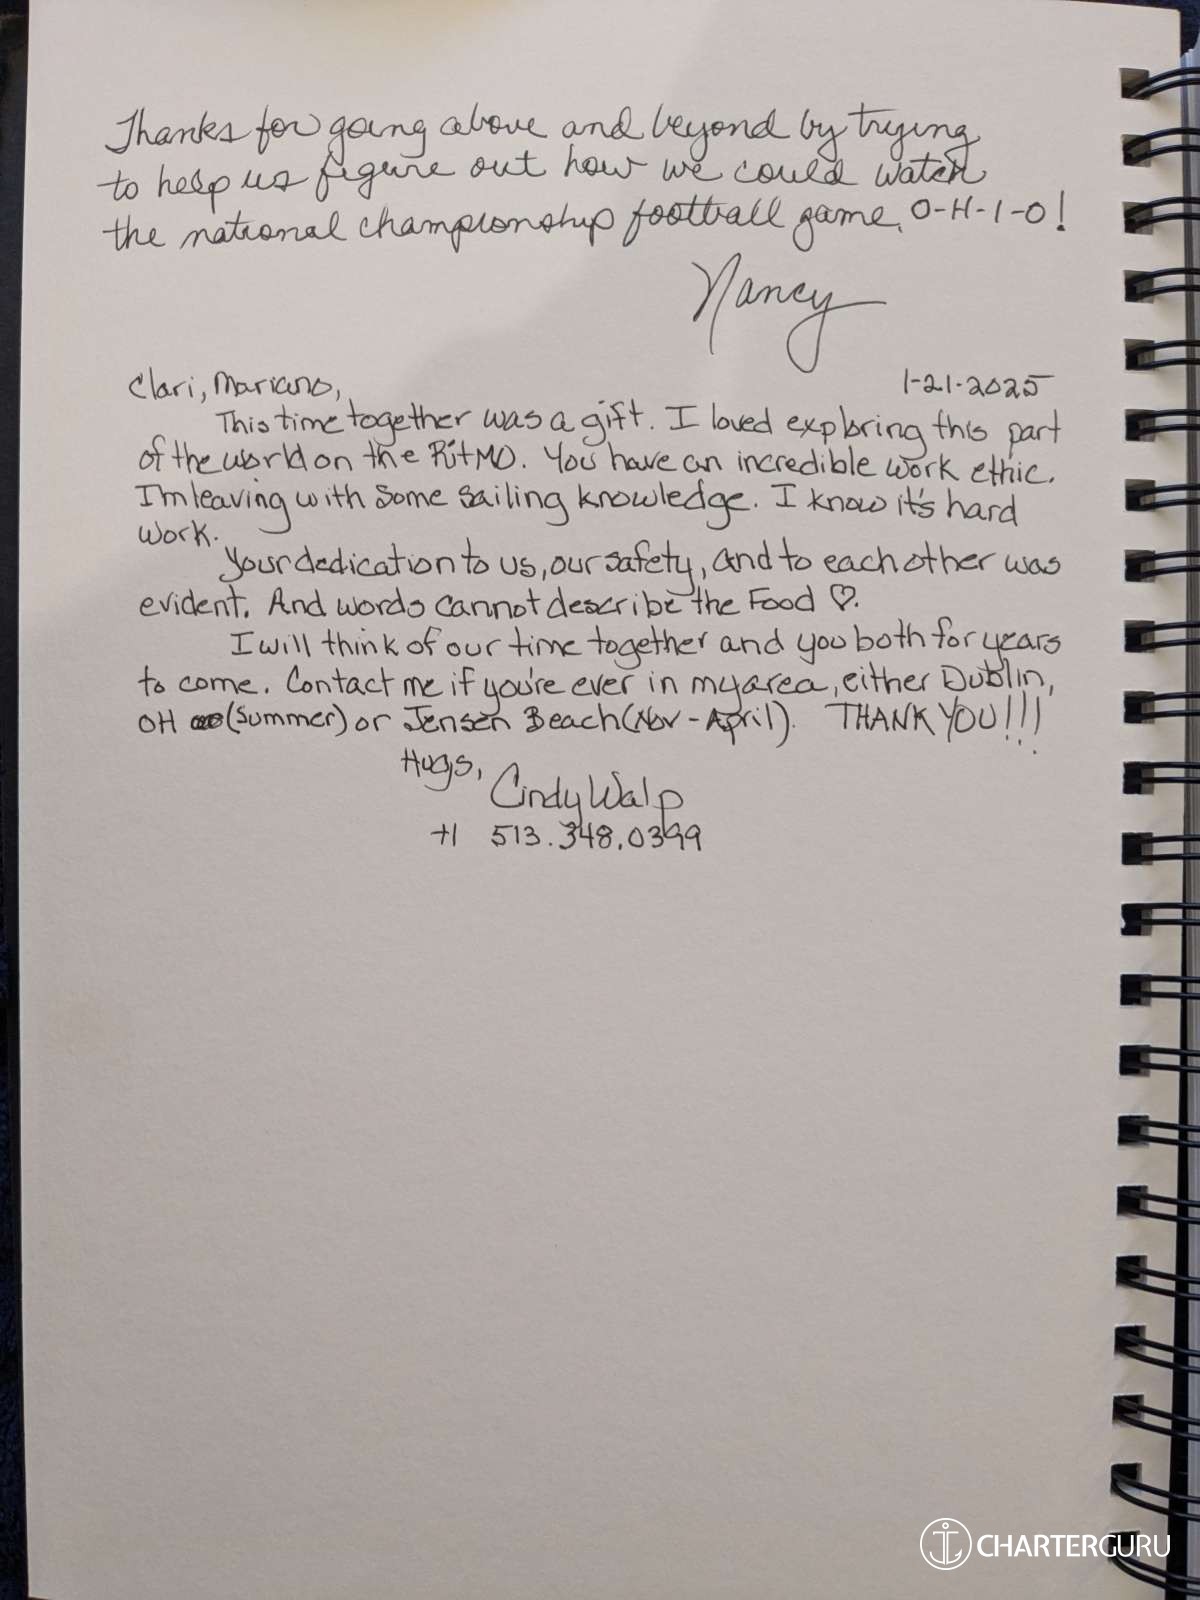 Thanks for going above and beyond by trying
to help us figure out how we could watch
the national championship football game. O-H-I-O!
Nancy
Clari, Mariano,
1-21-2025
This time together was a gift. I loved exploring this part
of the world on the RitMO. You have an incredible work ethic.
I'm leaving with some sailing knowledge. I know it's hard
work.
Your dedication to us, our safety, and to each other was
evident. And words cannot describe the Food ♡.
I will think of our time together and you both for years
to come. Contact me if you're ever in my area, either Dublin,
OH (summer) or Jensen Beach (Nov - April). THANK YOU!!!
Hugs,
Cindy Walp
+1 513.348.0399
CHARTERGURU